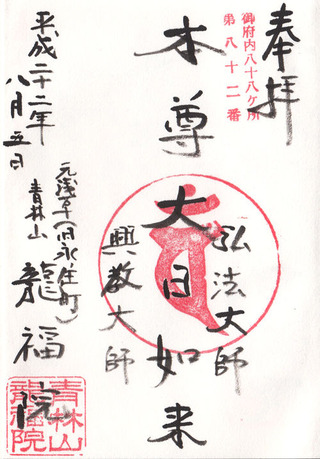 奉拝
御府内八十八ケ所
第八十二番
本尊
大日如来
弘法大師
興教大師
元浅草(旧永住町)
青林山
龍福院
平成二十二年
八月五日
青林山
龍福院